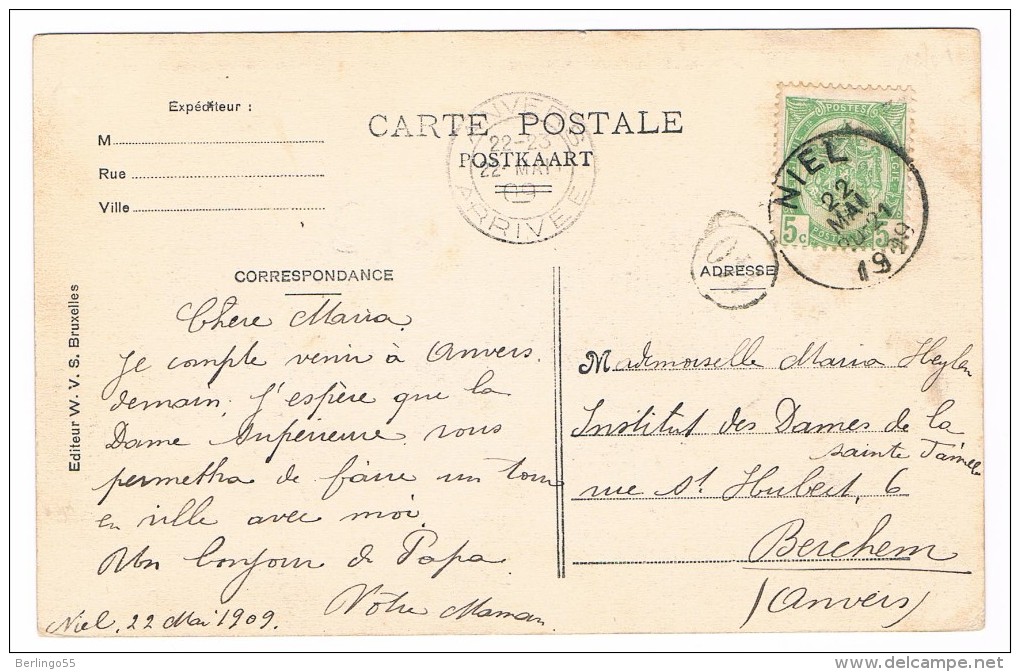 Expéditeur :
M
Rue
Ville
CARTE POSTALE
POSTKAART
ANVERS
22-23
22-MAI
09
ARRIVEE
POSTES
5c
5c
NIEL
22
MAI
20-21
1909
CORRESPONDANCE
ADRESSE
Editeur W. V. S. Bruxelles
Chère Maria
Je compte venir à Anvers
demain, j'espère que la
Dame Supérieure vous
permettra de faire un tour
en ville avec moi.
Un bonjour de Papa
Votre Maman
Niel, 22 Mai 1909.
Mademoiselle Maria Heylen
Institut des Dames de la
Sainte Famille
rue St. Hubert, 6
Berchem
(Anvers)
Berlingo55
delcampe.net